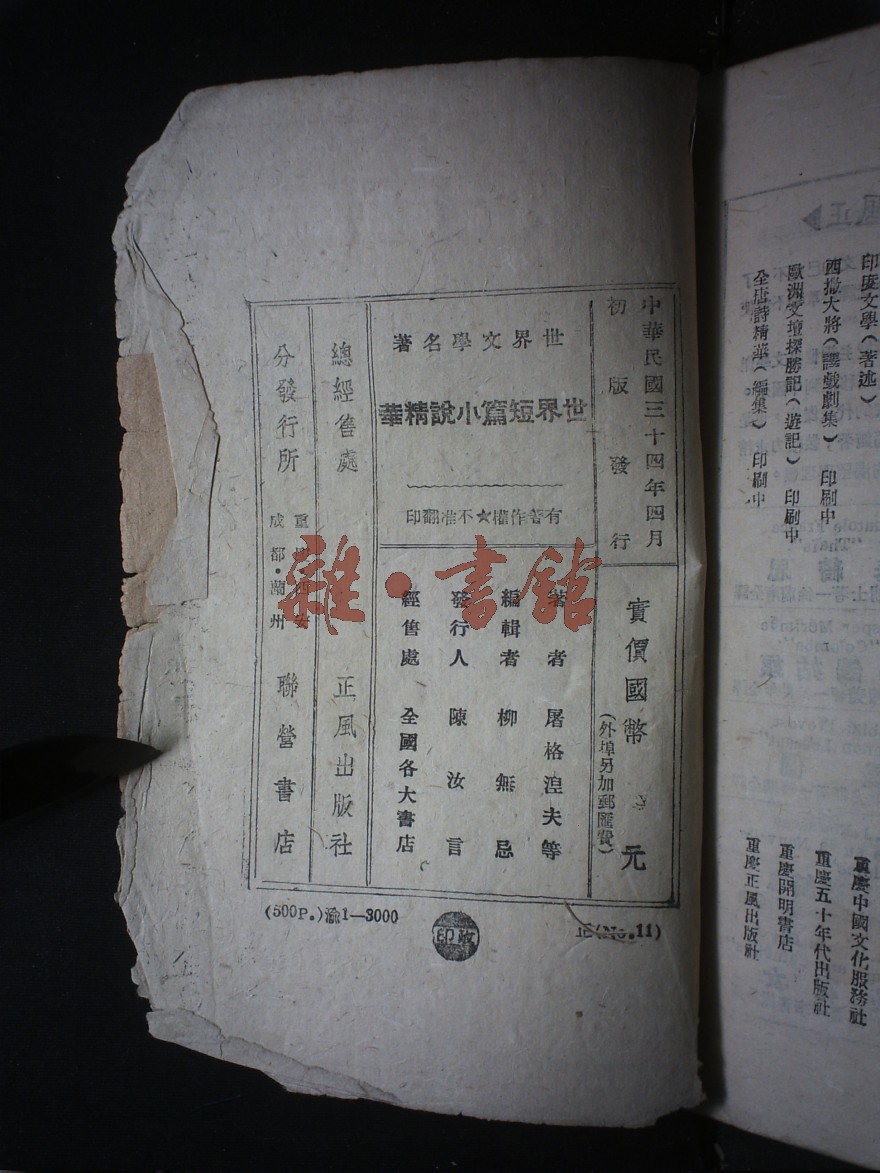 中華民國三十四年四月
初版發行
實價國幣 元
(外埠另加郵匯費)
世界文學名著
世界短篇小說精華
有著作權★不准翻印
著者 屠格湼夫等
編輯者 柳無忌
發行人 陳汝言
經售處 全國各大書店
總經售處 正風出版社
分發行所
成都·蘭州
聯營書店
(500P.)渝1—3000
印
正(No.11)
雜·書館
印度文學(著述)
西撒大將(譯戲劇集) 印刷中
歐洲文壇探勝記(遊記) 印刷中
全唐詩精華(編集) 印刷中
重慶中國文化服務社
重慶五十年代出版社
重慶開明書店
重慶正風出版社